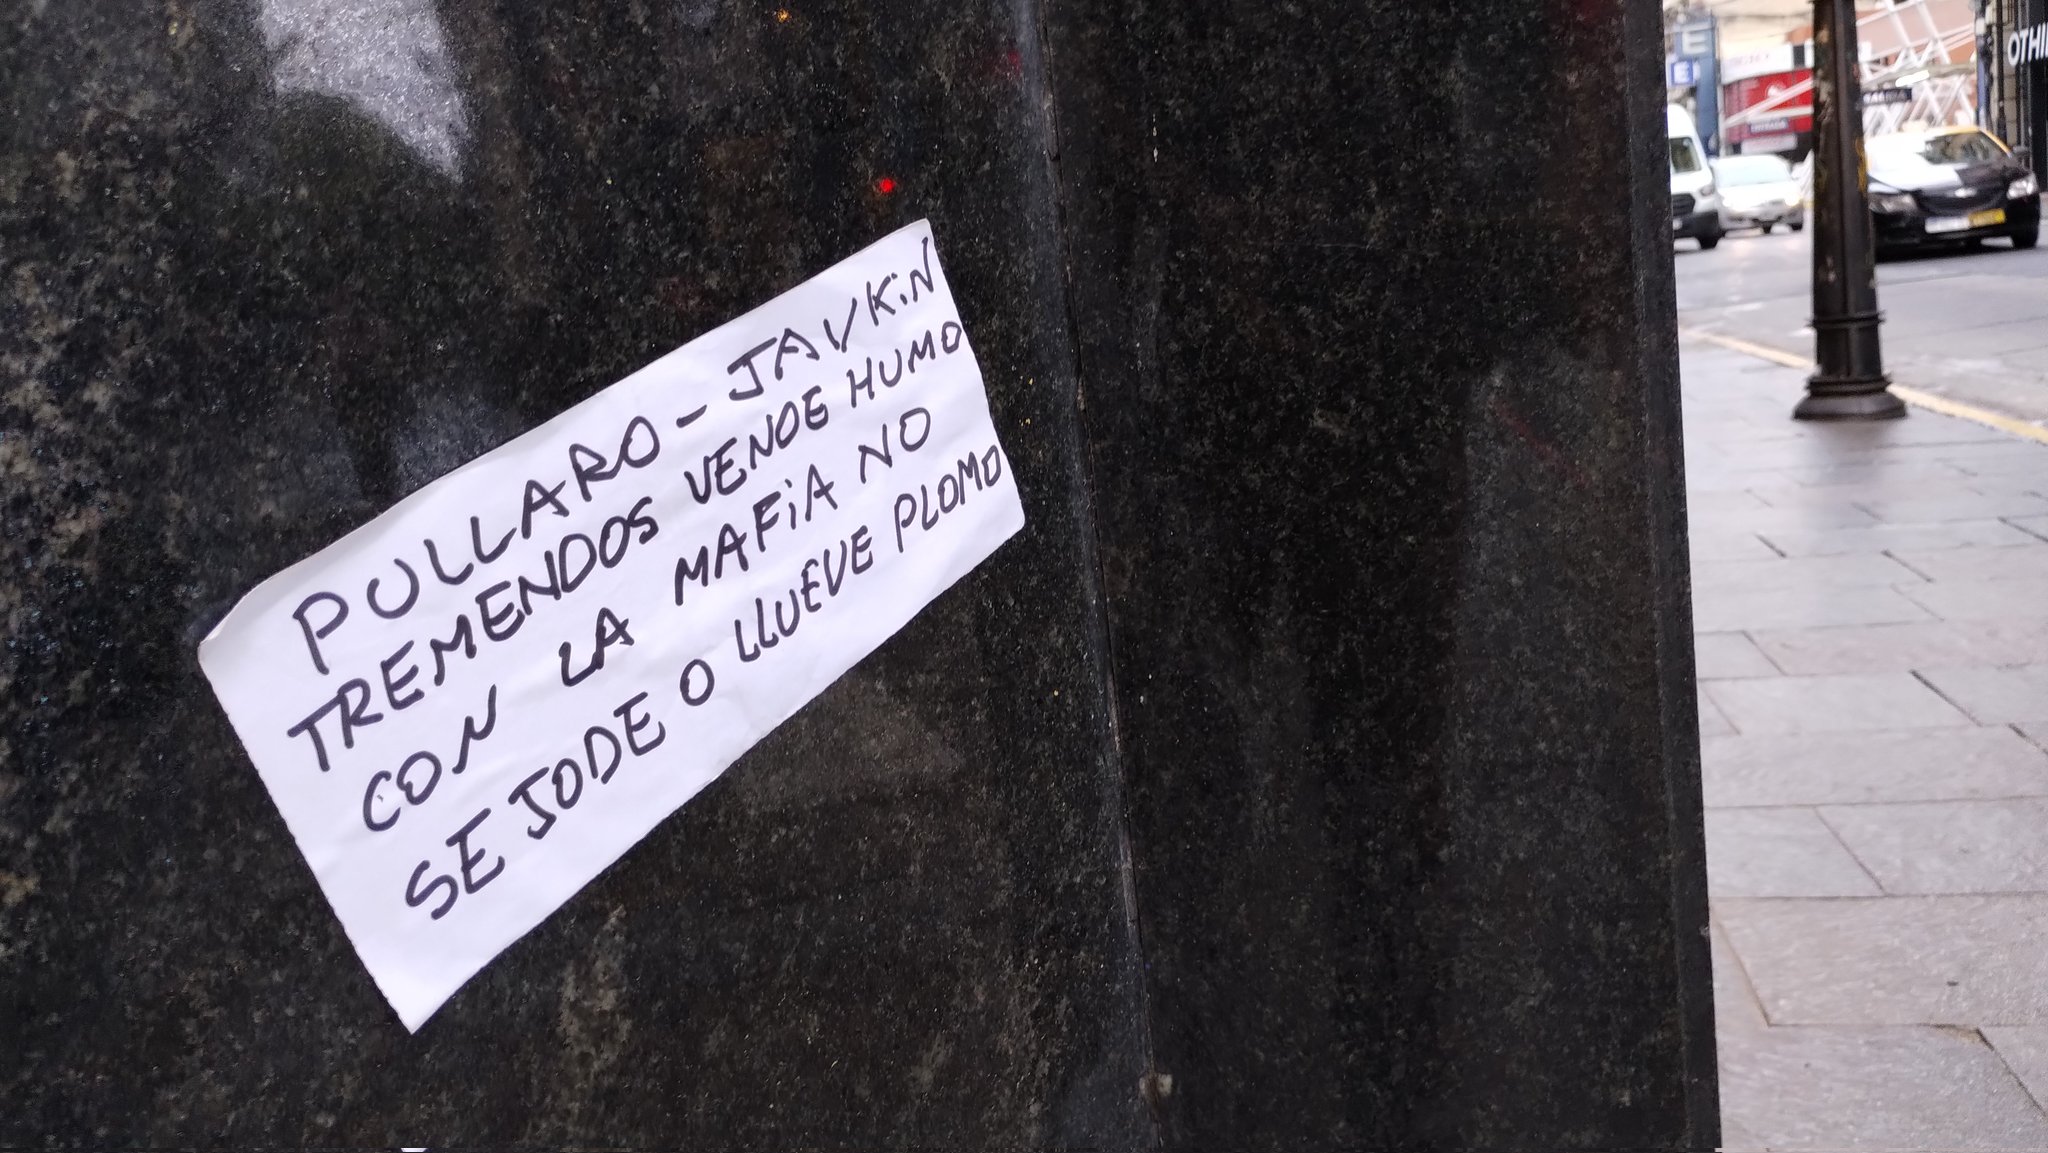 PULLARO - JAVKiN
TREMENDOS VENDE HUMO
CON LA MAFiA NO
SE JODE O LLUEVE PLOMO
E
E
OTHI